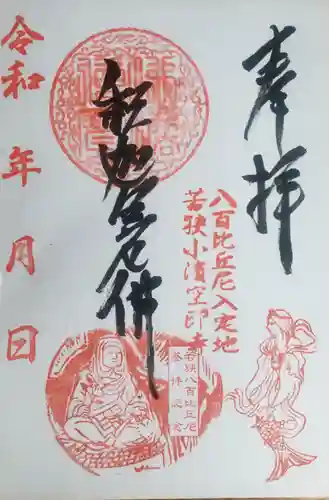 奉拝
八百比丘尼入定地
若狭小濱空印寺
釈迦牟尼佛
令和 年 月 日
若狭八百比丘尼